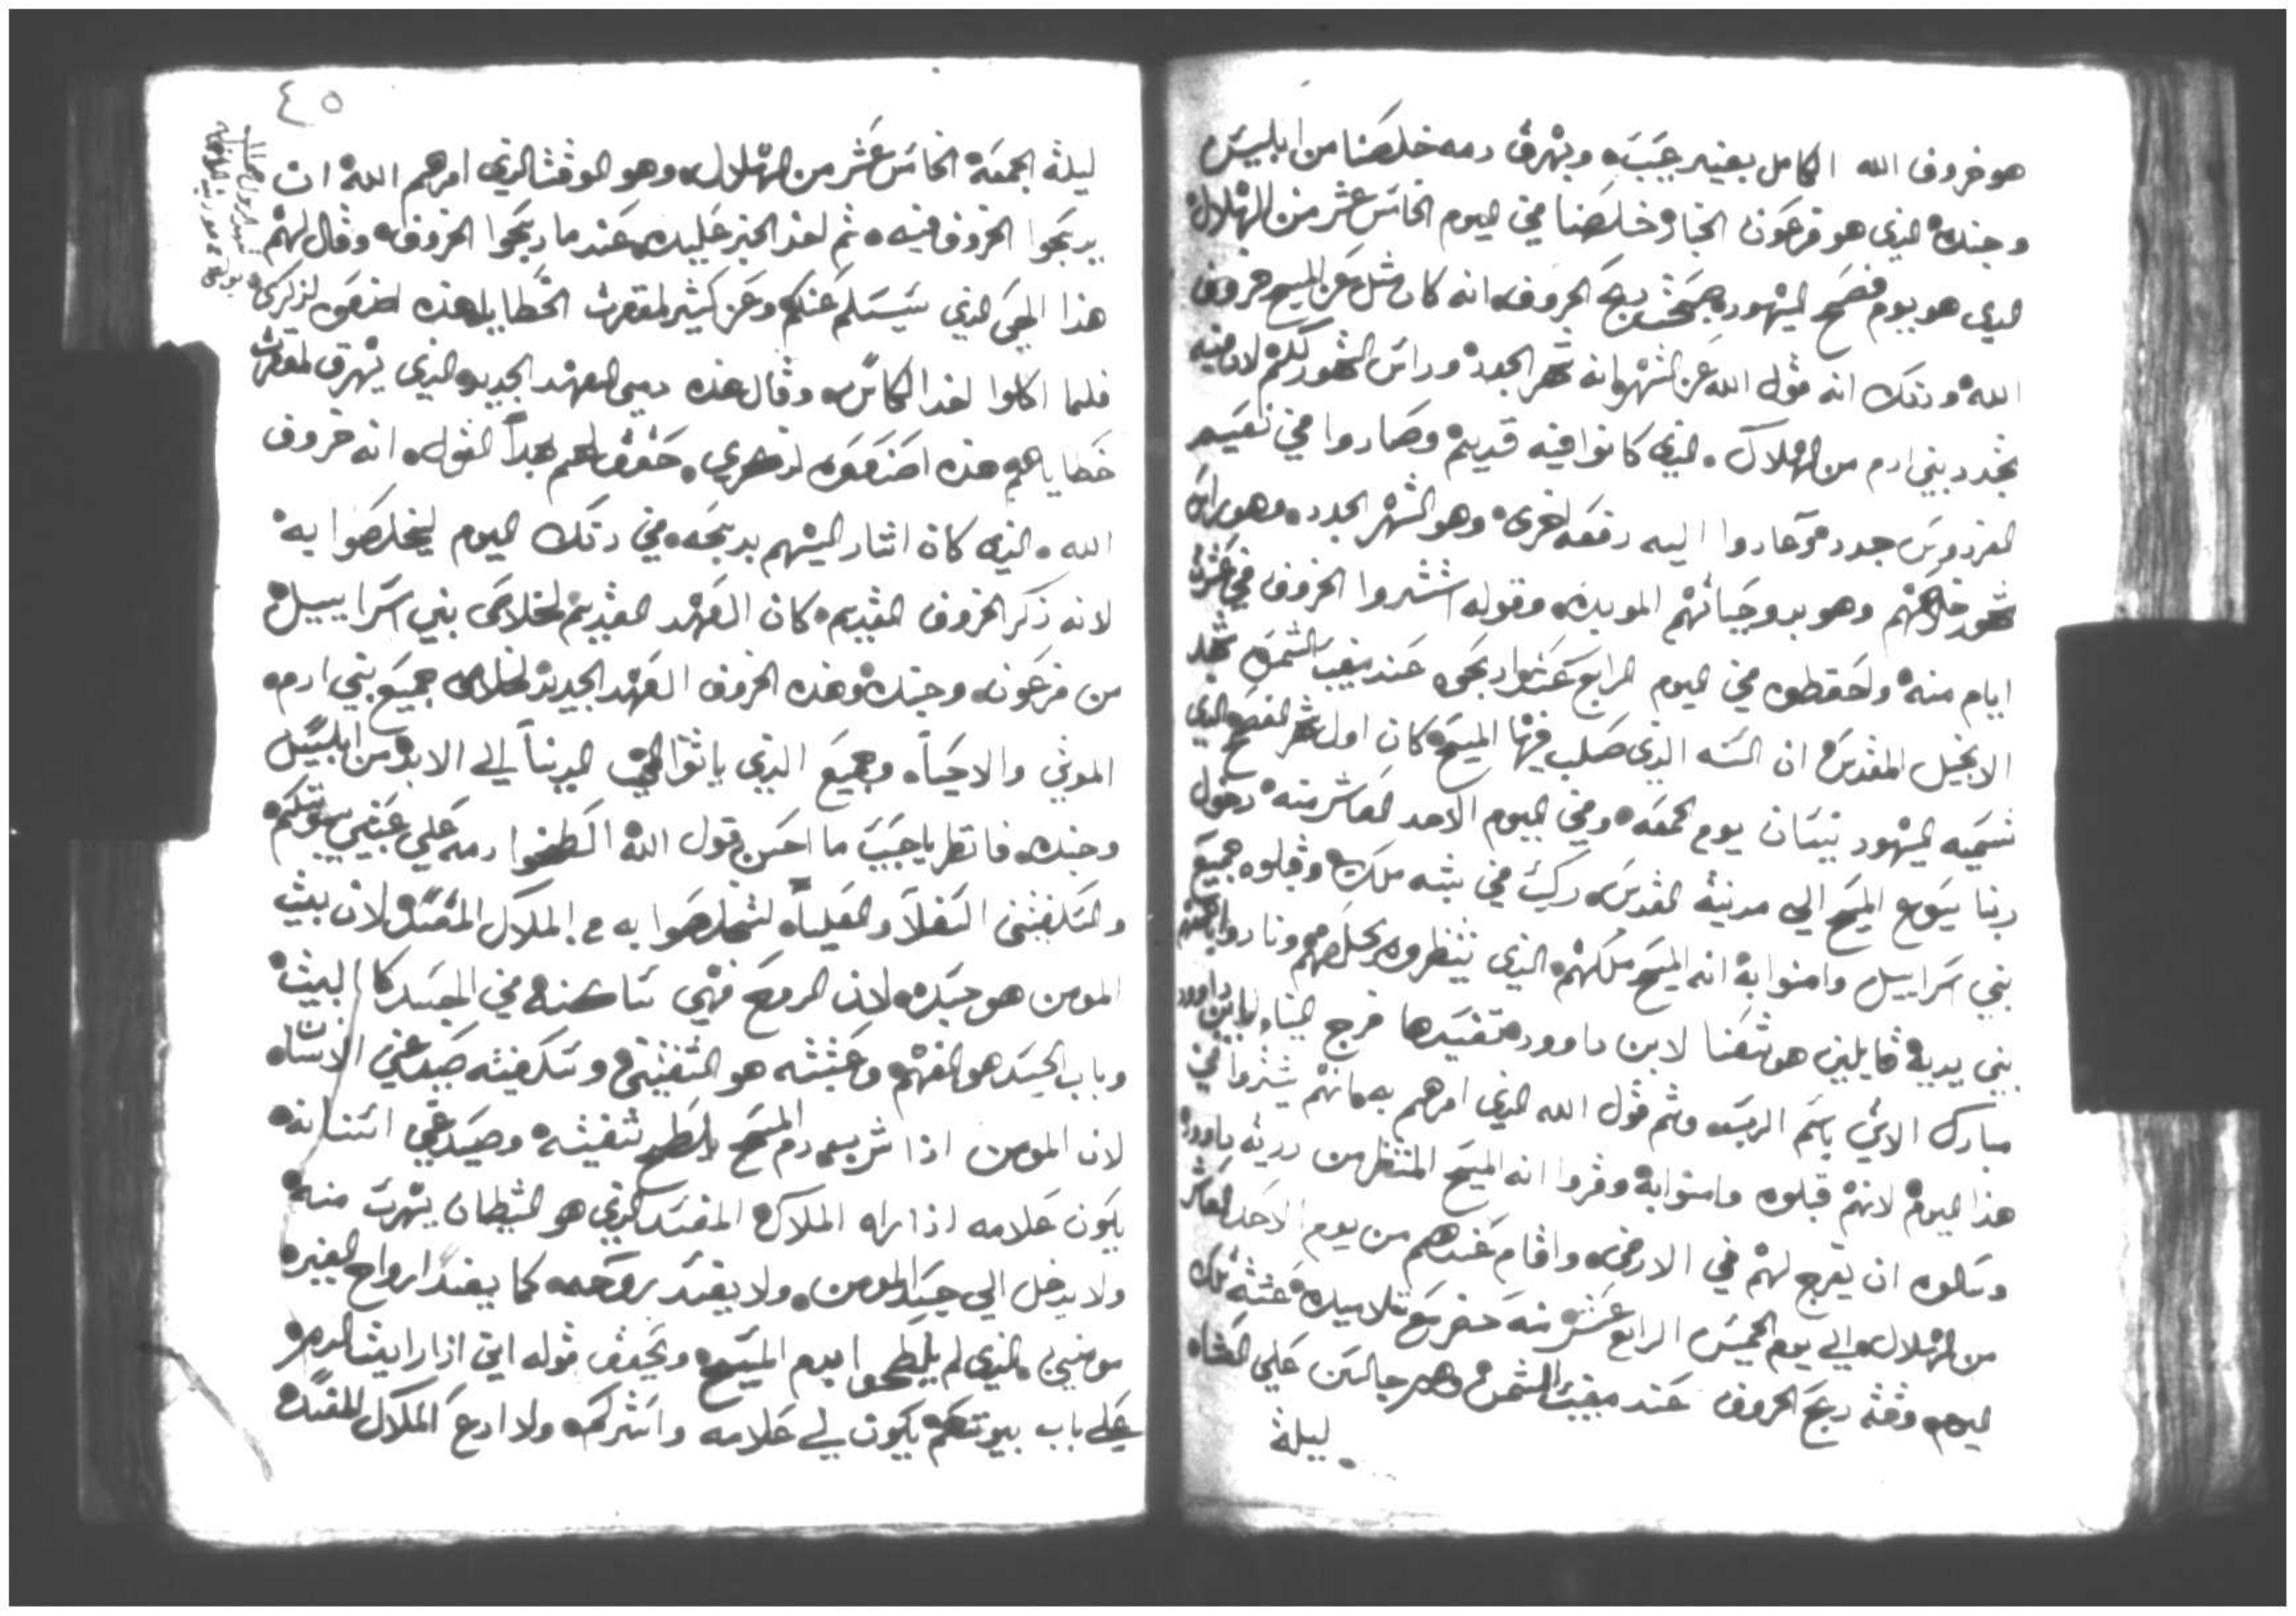 هو خروف الله الكامل بغير عيب وبهرق دمه خلصنا من ابليس
وجنده الذي هو فرعون خلصنا في اليوم الخامس عشر من الهلال
الذي هو يوم فصح اليهود دبح الخروف انه كان مثل عن المسيح خروف
الله ودلك انه قول الله عن الشهر انه شهر الجدد وراس الشهور لكم لان فيه
تجدد بني ادم من الهلاك الذي كانوا فيه قديم وصاروا في نعيم
الفردوس جدد وعادوا اليه دفعه اخرى وهو الشهر الجدد وهو راس
شهور خلاصهم وهو بدو حياتهم الموبده وقوله اشتروا الخروف في عشرة
ايام منه واحفظوه في اليوم الرابع عشر وادبحوه عند مغيب الشمس نجد
الانجيل المقدس ان السنه الذي صلب فيها المسيح كان اول شهر الفصح الذي
تسميه اليهود نيسان يوم الجمعه وفي اليوم الاحد العاشر منه دخول
ربنا يسوع المسيح الي مدينة القدس ركب في شبه ملك وقبلوه جميع
بني اسراييل وامنوا به انه المسيح ملكهم الذي ينتظروه يخلصهم ونادوا
بين يديه قايلين هوشعنا لابن داوود تفسيدها فرج لنا يابن داوود
مبارك الاتي باسم الرب وتم قول الله الذي امرهم به بانهم يشتروا في
هذا اليوم لانهم قبلوه وامنوا به وقروا انه المسيح المنتظر من درية داوود
وسالوه ان يفرج لهم في الارض واقام عندهم من يوم الاحد العاشر
من الهلال والي يوم الخميس الرابع عشر منه حضر مع تلاميده عشية تلك
اليوم وقت دبح الخروف عند مغيب الشمس وهم جالسين علي العشاء
ليلة
٤٥
ليلة الجمعة الخامس عشر من الهلال وهو الوقت الذي امرهم الله ان
يدبحوا الخروف فيه ثم اخد الخبز عليده عند ما دبحوا الخروف وقال لهم
هذا الحمي الذي يسلم عنكم وعن كثير لمغفرت الخطايا هذه اصنعوه لذكري
فلما اكلوا اخد الكاس وقال هذه دمي العهد الجديد الذي يهرق لمغفرت
خطاياهم هذه اصنعوه لذكري حقق لهم بهدا القول انه خروف
الله الذي كان اشار اليهم بدبحه في دلك اليوم ليخلصوا به
لانه ذكر الخروف القديم كان العهد القديم لخلاص بني اسراييل
من فرعون وجنده وهذه الخروف العهد الجديد لخلاص جميع بني ادم
الموتي والاحيا وجميع الذي ياتوا الي الدنيا الي الابد من ابليس
وجنده فانظر يا حبيب ما احسن قول الله الطخوا دمه علي عتب بيوتكم
والسكفتين السفلا والعليا لتخلصوا به من الملاك المفسد لان بيت
المومن هو جسده لان الروح فهي ساكنه في الجسد كالبيت
وباب الجسد هو الفهم وعتبته هو الشفتين وسكفيته صدغي الانسان
لان المومن اذا شرب دم المسيح يلطخ شفيته وصدغي اسنانه
يكون علامه اذا راه الملاك المفسد الذي هو الشيطان يهرب منه
ولا يدخل الي جسد المومن ولا يفسد روحه كما يفسد ارواح الغير
مومنين الذي لم يلطخوا بدم المسيح ويحقق قوله اني اذا رايت الدم
علي باب بيوتكم يكون لي علامه واستركم ولا ادع الملاك المفسد